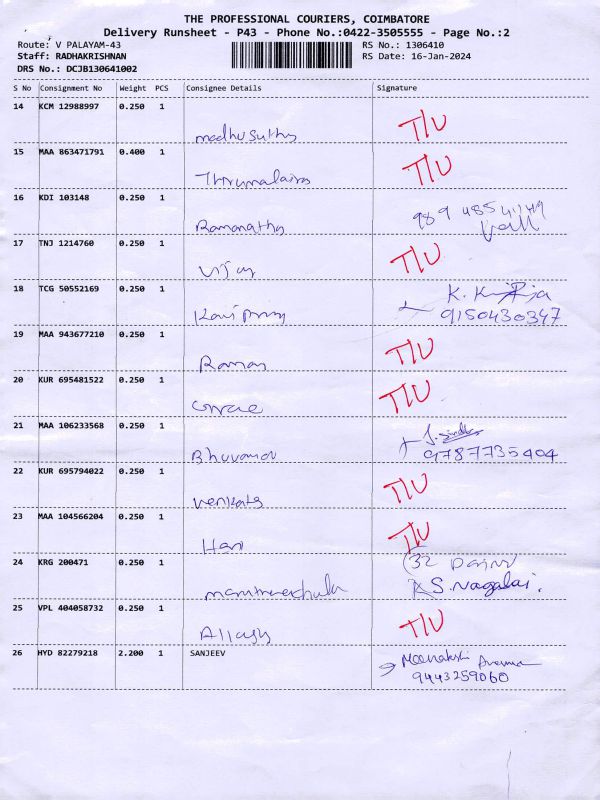 THE PROFESSIONAL COURIERS, COIMBATORE
Delivery Runsheet - P43 - Phone No.:0422-3505555 - Page No.:2
Route: V PALAYAM-43 RS No.: 1306410
Staff: RADHAKRISHNAN RS Date: 16-Jan-2024
DRS No.: DCJB130641002
S No Consignment No Weight PCS Consignee Details Signature
14 KCM 12988997 0.250 1
madhusuthy T/U
15 MAA 863471791 0.400 1
T/U
16 KDI 103148 0.250 1
Ramanathy
17 TNJ 1214760 0.250 1
Vijay T/U
18 TCG 50552169 0.250 1
K. K
9150430347
19 MAA 943677210 0.250 1
Raman T/U
20 KUR 695481522 0.250 1
T/U
21 MAA 106233568 0.250 1
J. Sindhu
Bhuvana 9787735404
22 KUR 695794022 0.250 1
Venkats T/U
23 MAA 104566204 0.250 1
Hari T/U
24 KRG 200471 0.250 1
(32
S. Nagalai.
25 VPL 404058732 0.250 1
T/U
26 HYD 82279218 2.200 1 SANJEEV
Meenakshi
9443259060